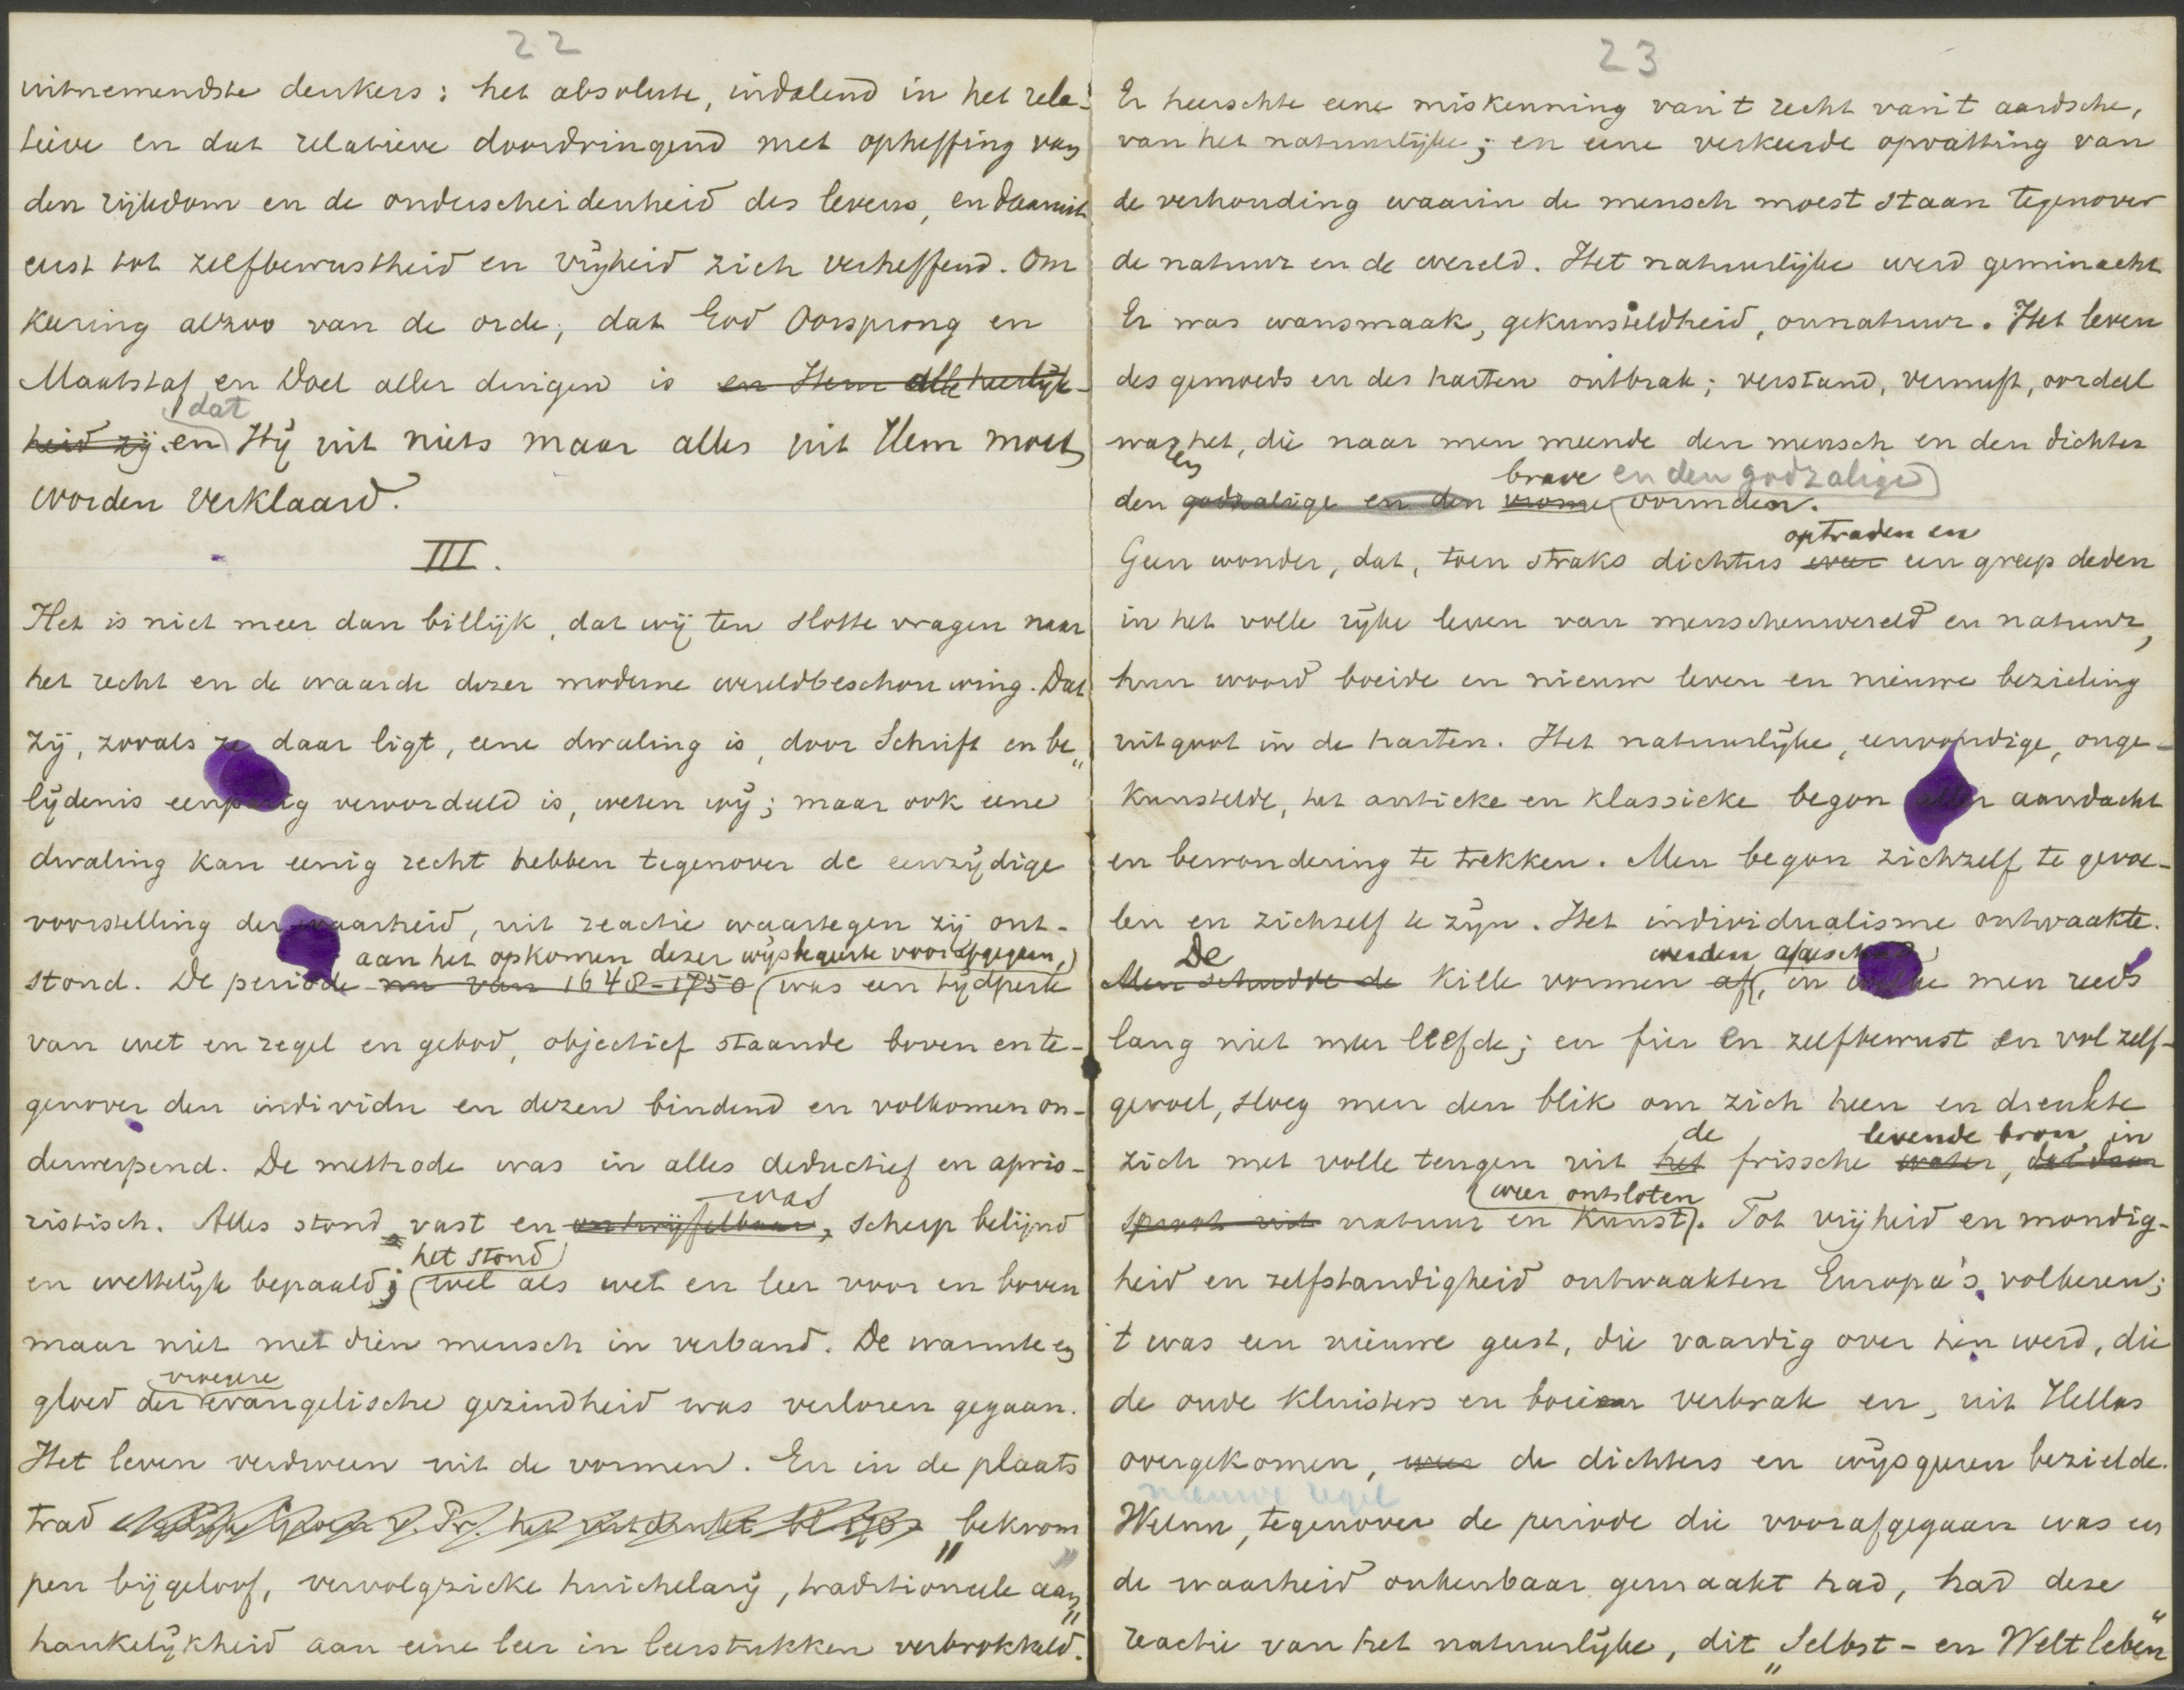 22
uitnemendste denkers: het absolute, indalend in het rela-
tieve en dat relatieve doordringend met opheffing van
den rijkdom en de onderscheidenheid des levens, en daaruit
eerst tot zelfbewustheid en vrijheid zich verheffend. Om
keering alzoo van de orde, dat God Oorsprong en
Maatstaf en Doel aller dingen is en Hem alle heerlijk-
dat
heid zij. en Hij uit niets maar alles uit Hem moet
worden verklaard.
III.
Het is niet meer dan billijk, dat wij ten slotte vragen naar
het recht en de waarde dezer moderne wereldbeschouwing. Dat
zij, zooals ze daar ligt, eene dwaling is, door Schrift en be„
lijdenis eenparig veroordeeld is, weten wij; maar ook eene
dwaling kan eenig recht hebben tegenover de eenzijdige
voorstelling der waarheid, uit reactie waartegen zij ont-
aan het opkomen dezer wijsbegeerte voorafgegaan,
stond. De periode nu van 1648-1750 was een tijdperk
van wet en regel en gebod, objectief staande boven en te-
genover den individu en dezen bindend en volkomen on-
derwerpend. De methode was in alles deductief en aprio-
was
ristisch. Alles stond vast en ontwijfelbaar, scherp belijnd
het stond
en wettelijk bepaald; wel als wet en leer voor en boven
maar niet met dien mensch in verband. De warmte en
vroegere
gloed der evangelische gezindheid was verloren gegaan.
Het leven verdween uit de vormen. En in de plaats
trad „bekrom
pen bijgeloof, vervolgzieke huichelarij, traditioneele aan„
hankelijkheid aan eene leer in leerstukken verbrokkeld.
23
Er heerschte eene miskenning van 't recht van 't aardsche,
van het natuurlijke; en eene verkeerde opvatting van
de verhouding waarin de mensch moest staan tegenover
de natuur en de wereld. Het natuurlijke werd geminacht
Er was wansmaak, gekunsteldheid, onnatuur. Het leven
des gemoeds en des harten ontbrak; verstand, vernuft, oordeel
waren het, die naar men meende den mensch en den dichter
brave en den godzalige
den godzalige en den vrome vormden.
optraden en
Geen wonder, dat, toen straks dichters weer een greep deden
in het volle rijke leven van menschenwereld en natuur,
hun woord boeide en nieuw leven en nieuwe bezieling
uitgoot in de harten. Het natuurlijke, eenvoudige, onge-
kunstelde, het antieke en klassieke begon aller aandacht
en bewondering te trekken. Men begon zichzelf te gevoe-
len en zichzelf te zijn. Het individualisme ontwaakte.
De werden afgeschud
Men schudde de kille vormen af, in welke men reeds
lang niet meer leefde; en fier en zelfbewust en vol zelf-
gevoel, sloeg men den blik om zich heen en drenkte
de levende bron, in
zich met volle teugen uit het frissche water, dat daar
weer ontsloten
sproot uit natuur en kunst. Tot vrijheid en mondig-
heid en zelfstandigheid ontwaakten Europa's volkeren;
't was een nieuwe geest, die vaardig over hen werd, die
de oude kluisters en boeien verbrak en, uit Hellas
overgekomen, weer de dichters en wijsgeeren bezielde.
nieuwe regel
Welnu, tegenover de periode die voorafgegaan was en
de waarheid onkenbaar gemaakt had, had deze
reactie van het natuurlijke, dit „Selbst- en Weltleben"